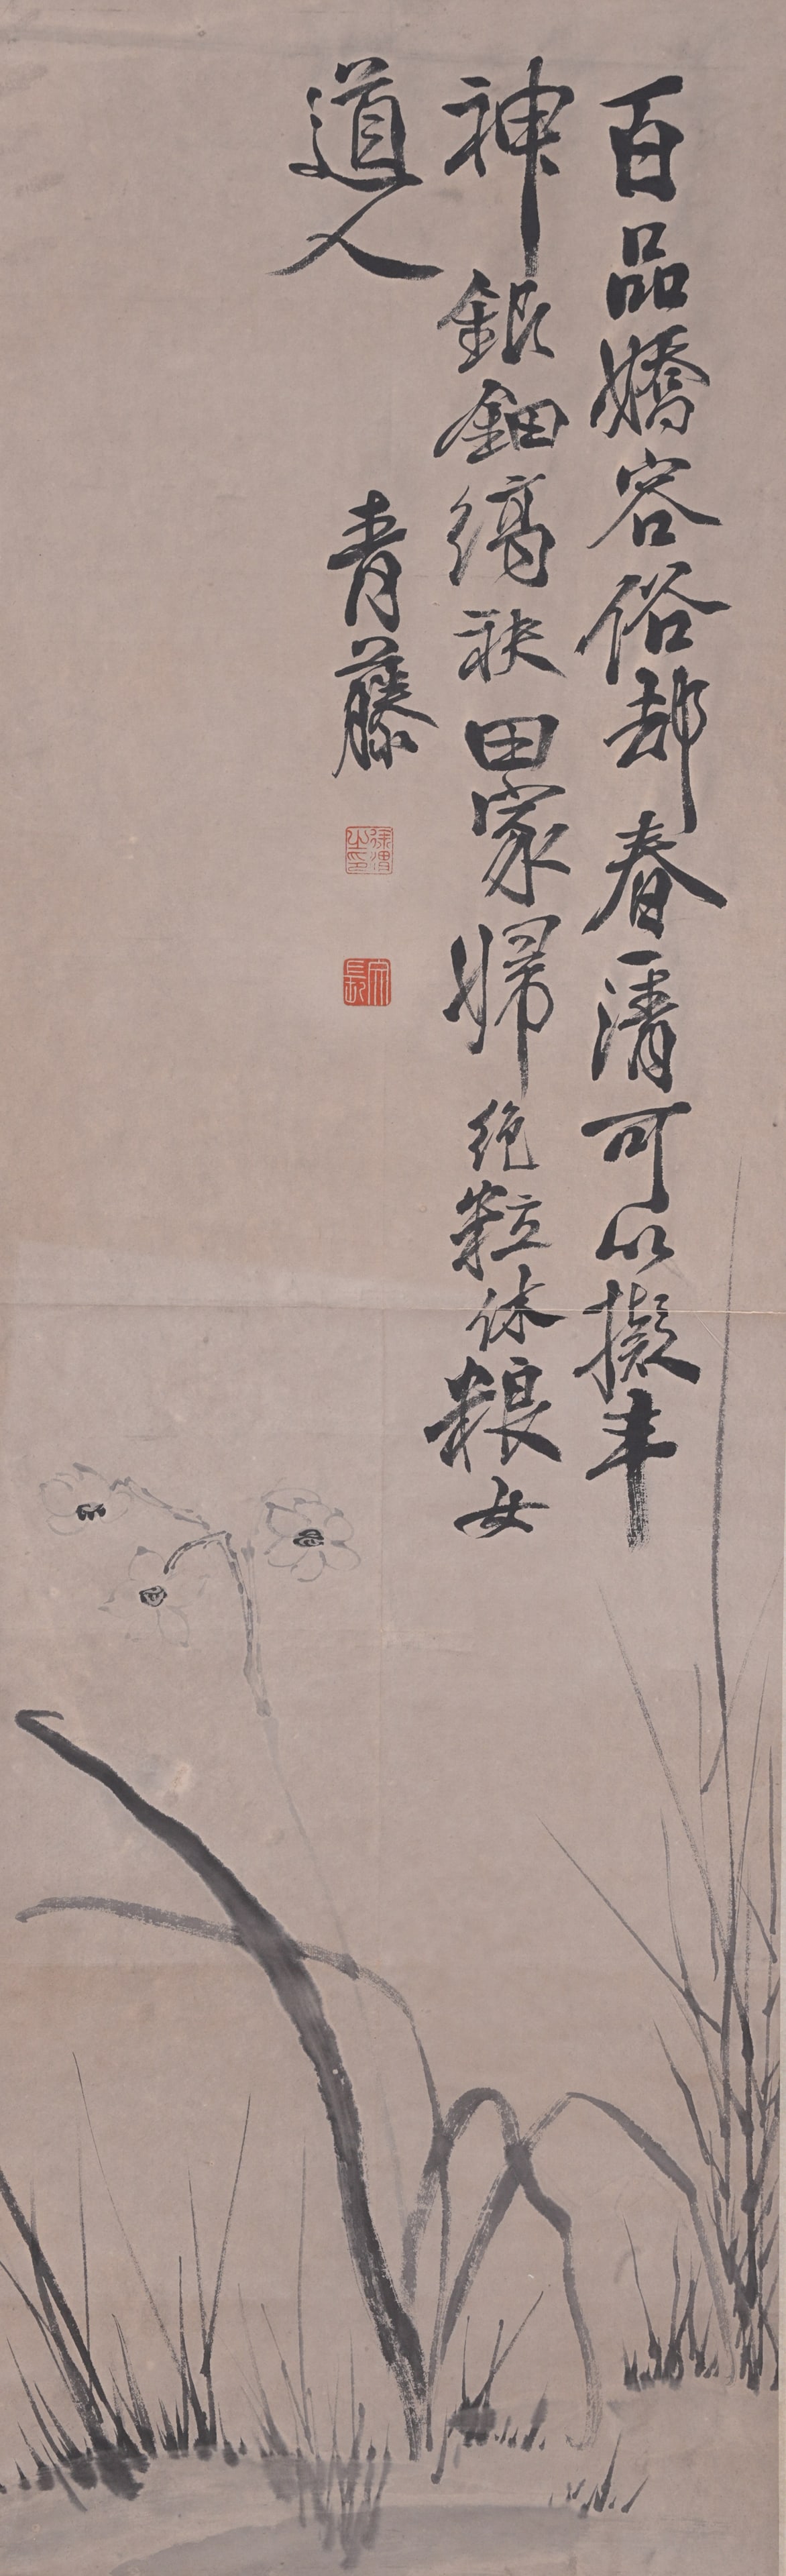 百品嬌容俗却春一清可以擬丰
神銀鈿縞袂田家婦絶粒休粮女
道人
青藤
徐渭之印
文長